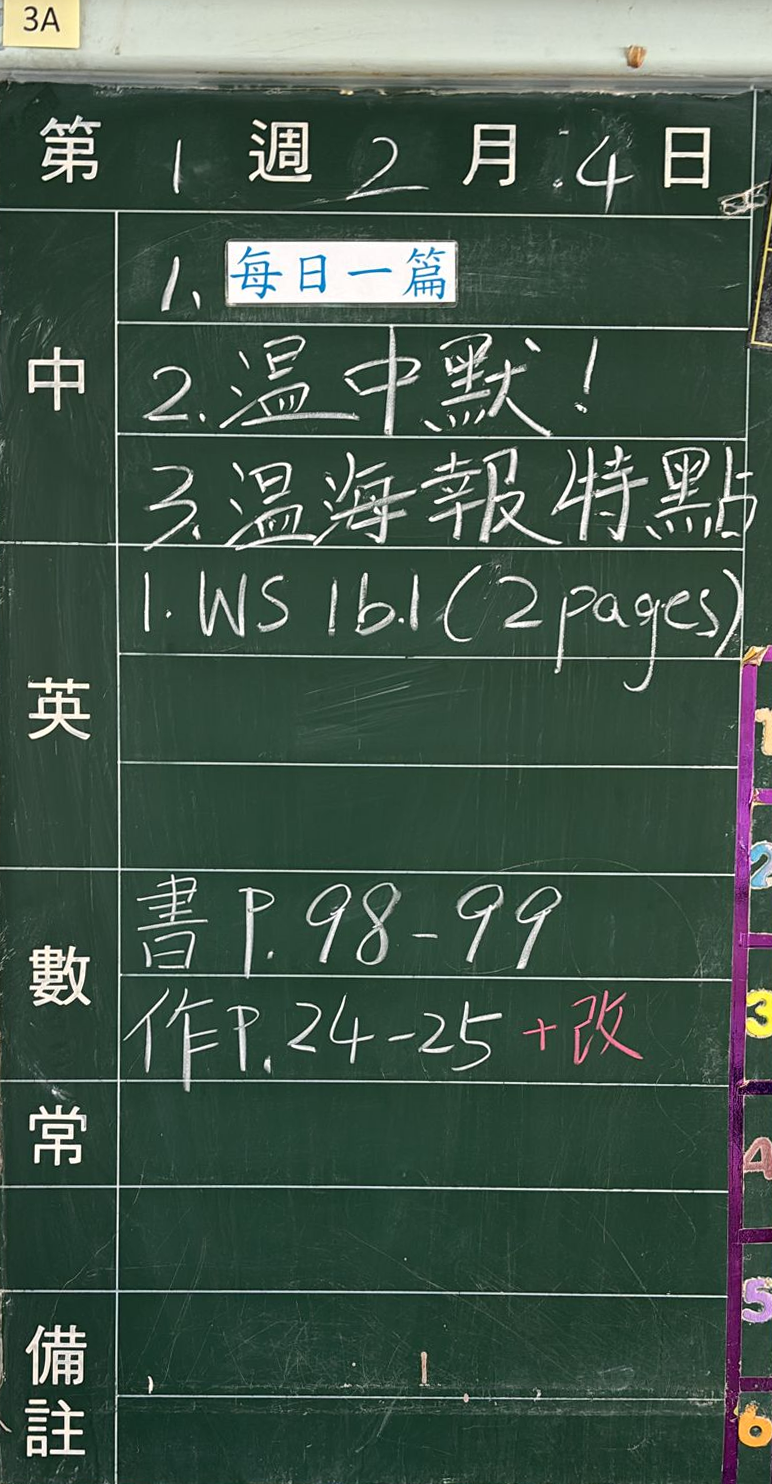 3A
第 1 週 2 月 4 日
中
1. 每日一篇
2. 温中默!
3. 温海報特點
英
1. WS 1b.1 (2 pages)
數
書 P. 98-99
作 P. 24-25 +改
常
備註
1
2
3
4
5
6